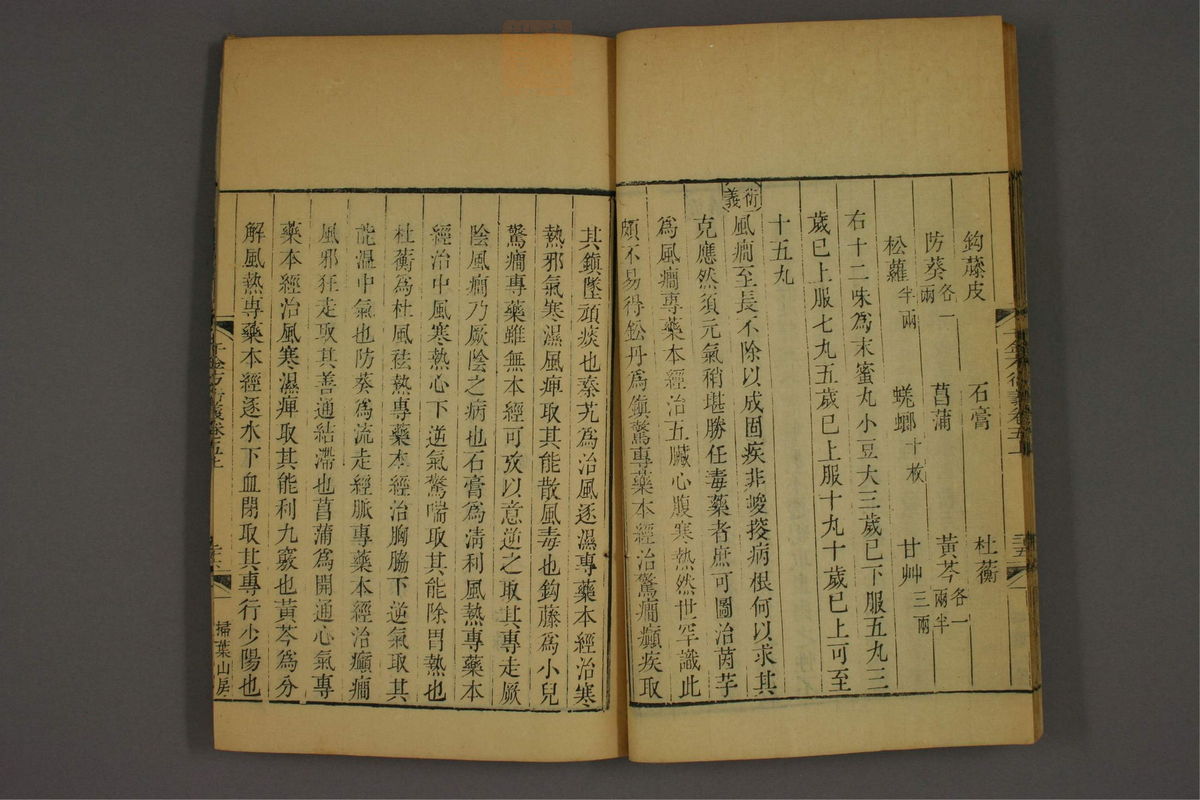 鈎藤皮 石膏 杜蘅
防葵各一兩 菖蒲 黃芩各一兩半
松蘿半兩 蜣螂十枚 甘艸三兩
右十二味為末蜜丸小豆大三歲已下服五丸三
歲已上服七丸五歲已上服十丸十歲已上可至
十五丸
衍義 風癎至長不除以成固疾非峻掞病根何以求其
克應然須元氣稍堪勝任毒藥者庶可圖治茵芋
為風癎專藥本經治五臟心腹寒熱然世罕識此
頗不易得鈆丹為鎮驚專藥本經治驚癎癲疾取
其鎮墜頑痰也秦艽為治風逐濕專藥本經治寒
熱邪氣寒濕風痺取其能散風毒也鈎藤為小兒
驚癎專藥雖無本經可攷以意逆之取其專走厥
陰風癎乃厥陰之病也石膏為清利風熱專藥本
經治中風寒熱心下逆氣驚喘取其能除胃熱也
杜蘅為杜風祛熱專藥本經治胸脇下逆氣取其
能溫中氣也防葵為流走經脈專藥本經治癲癎
風邪狂走取其善通結滯也菖蒲為開通心氣專
藥本經治風寒濕痺取其能利九竅也黃芩為分
解風熱專藥本經逐水下血閉取其專行少陽也
掃葉山房